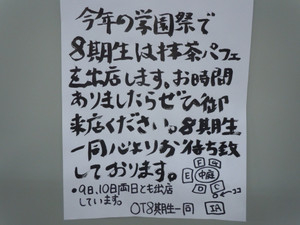 今年の学園祭で
8期生は抹茶パフェ
を出店します。お時間
ありましたらぜひ御
来店ください。8期生
一同心よりお待ち致
しております。
・9日、10日両日とも出店
しています。
OT8期生一同
F G
E 中庭
D C
ココ
1A